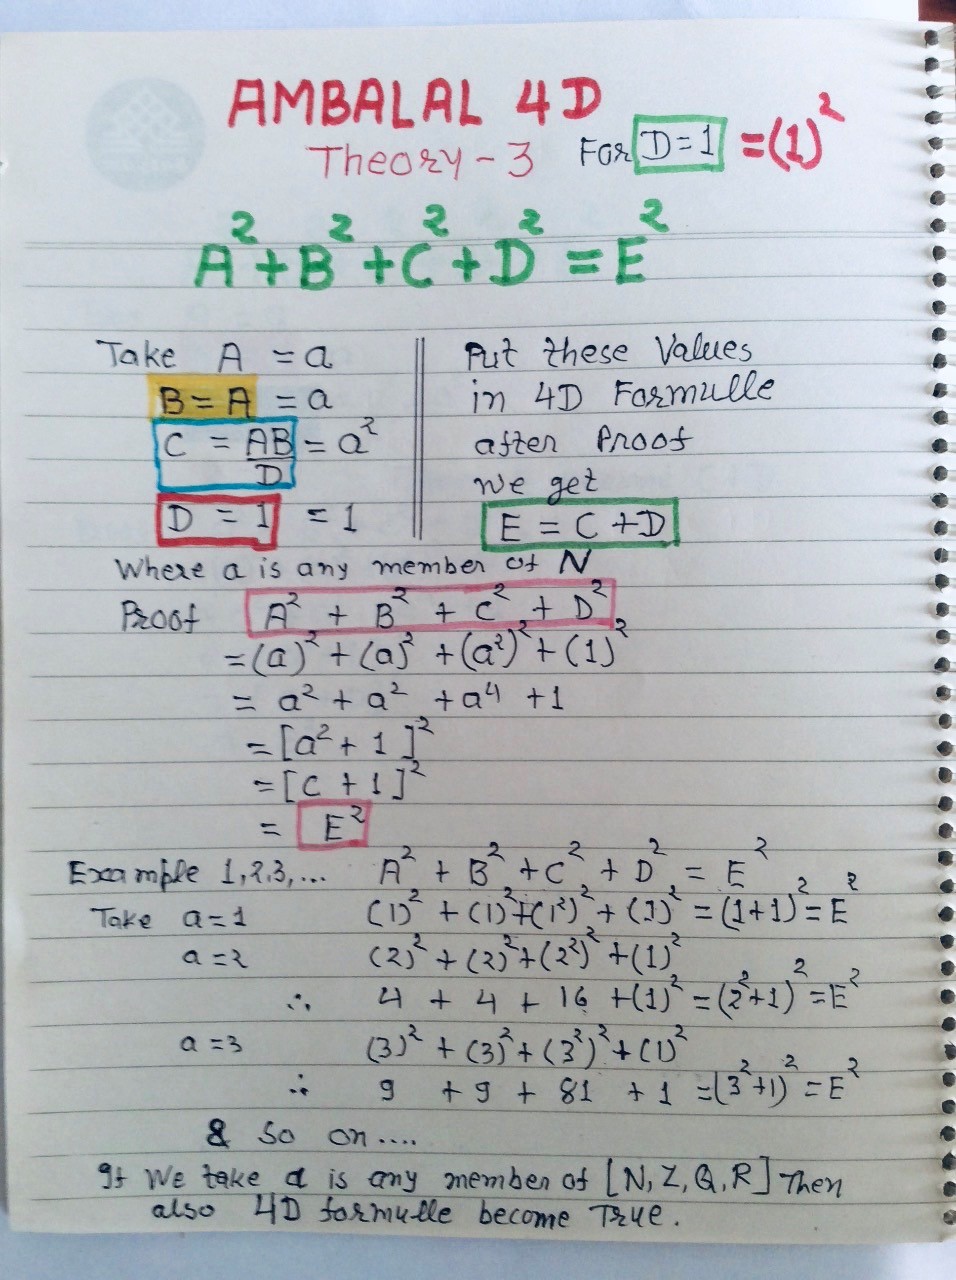 AMBALAL 4D
Theory-3 For D=1 =(1)²
A²+B²+C²+D² = E²
Take A = a
B = A = a
C = AB/D = a²
D = 1 = 1
Put these Values
in 4D Formulle
after Proof
we get
E = C + D
Where a is any member of N
Proof A² + B² + C² + D²
= (a)² + (a)² + (a²)² + (1)²
= a² + a² + a⁴ + 1
= [a² + 1]²
= [C + 1]²
= E²
Example 1,2,3,... A² + B² + C² + D² = E²
Take a=1 (1)² + (1)² + (1²)² + (1)² = (1+1)² = E²
a=2 (2)² + (2)² + (2²)² + (1)²
∴ 4 + 4 + 16 + (1)² = (2²+1)² = E²
a=3 (3)² + (3)² + (3²)² + (1)²
∴ 9 + 9 + 81 + 1 = (3²+1)² = E²
& so on....
If We take a is any member of [N, Z, Q, R] Then
also 4D formulle become True.